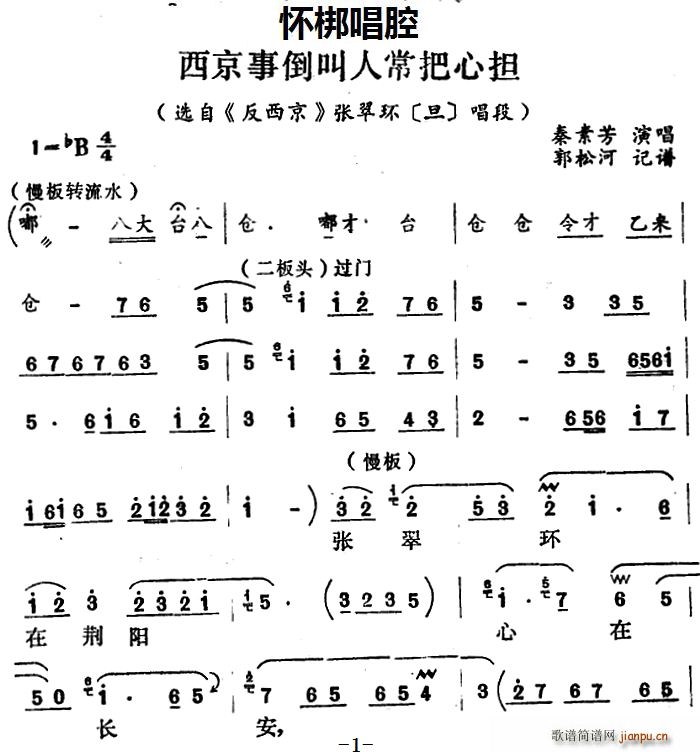 怀梆唱腔
西京事倒叫人常把心担
（选自《反西京》张翠环〔旦〕唱段）
1=♭B 4/4
秦素芳 演唱
郭松河 记谱
（慢板转流水）
（嘟 - 八大 台八 | 仓. 嘟才 台 | 仓 仓 令才 乙来 |
（二板头）过门
仓 - 76 5 | 5 i i2 76 | 5 - 3 35 |
67676763 5 | 5 i i2 76 | 5 - 35 656i |
5. 6i6 i2 | 3 i 65 43 | 2 - 656 i7 |
（慢板）
i6i65 2i232 | i - ） 32 2 53 2 i. 6 |
张 翠 环
i2 3 232i | 5. （3235） | i. 7 6 5 |
在 荆 阳 心 在
50 i. 65 | 7 65 654 3 （27 67 65 |
长 安，
-1-
歌谱简谱网 jianpu.cn